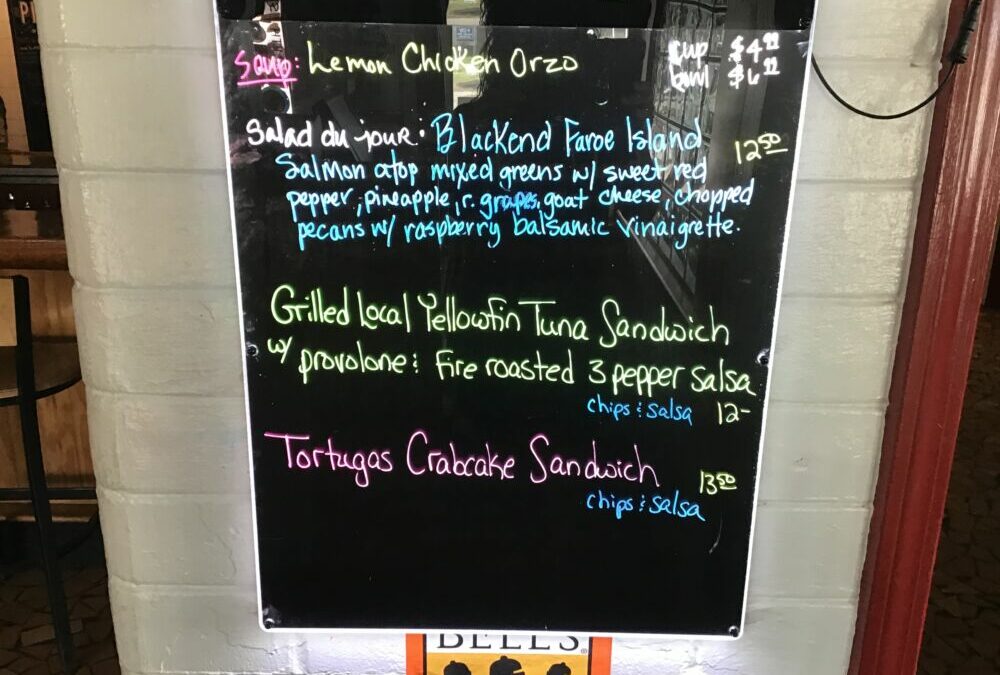 Soup: Lemon Chicken Orzo
cup $4.99
bowl $6.99
Salad du jour. Blackend Faroe Island
Salmon atop mixed greens w/ sweet red 12.50
pepper, pineapple, r. grapes, goat cheese, chopped
pecans w/ raspberry balsamic vinaigrette.
Grilled Local Yellowfin Tuna Sandwich
w/ provolone & Fire roasted 3 pepper salsa
chips & salsa 12-
Tortugas Crabcake Sandwich
13.50
chips & salsa
BELL'S